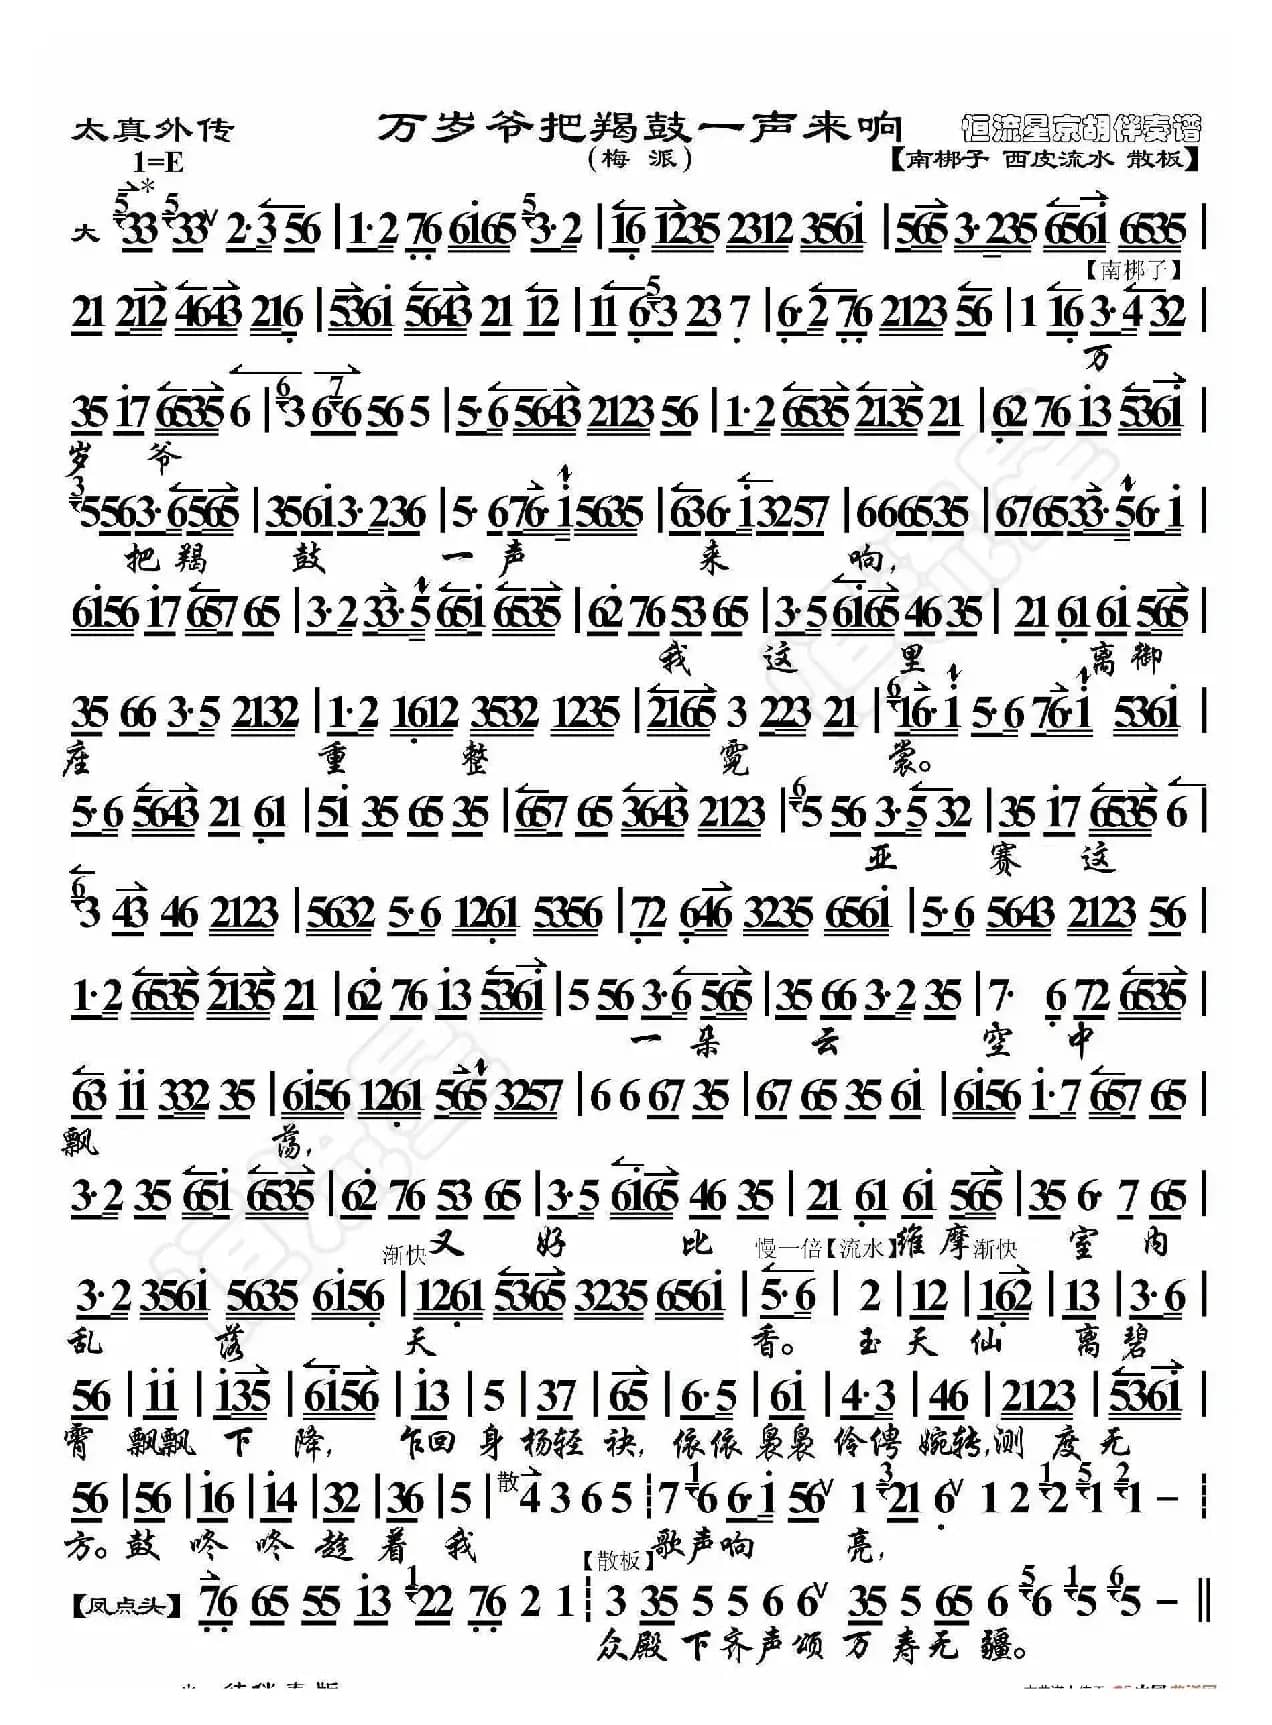 太真外传 万岁爷把羯鼓一声来响 恒流星京胡伴奏谱
1=E (梅 派) 【南梆子 西皮流水 散板】
大 33 33 2·3 56 | 1·2 76 6165 3·2 | 16 1235 2312 3561 | 565 3·235 6561 6535 |
【南梆子】
21 212 4643 216 | 5361 5643 21 12 | 11 63 23 7 | 6·2 76 2123 56 | 1 16 3·4 32 |
万
35 17 6535 6 | 3 66 565 | 5·6 5643 2123 56 | 1·2 6535 2135 21 | 62 76 13 5361 |
岁 爷
5563·6565 | 35613·236 | 5·676·15635 | 636·13257 | 666535 | 676533·56·1 |
把羯 鼓 一声 来 响，
6156 17 657 65 | 3·2 33·5 651 6535 | 62 76 53 65 | 3·5 6165 46 35 | 21 61 61 565 |
我 这 里 离御
35 66 3·5 2132 | 1·2 1612 3532 1235 | 2165 3 223 21 | 16·1 5·6 76·1 5361 |
座 重 整 霓 裳。
5·6 5643 21 61 | 51 35 65 35 | 657 65 3643 2123 | 5 56 3·5 32 | 35 17 6535 6 |
亚 赛 这
3 43 46 2123 | 5632 5·6 1261 5356 | 72 646 3235 6561 | 5·6 5643 2123 56
1·2 6535 2135 21 | 62 76 13 5361 | 5 56 3·6 565 | 35 66 3·2 35 | 7· 6 72 6535 |
一 朵 云 空 中
63 11 332 35 | 6156 1261 565 3257 | 6 6 67 35 | 67 65 35 61 | 6156 1·7 657 65 |
飘 荡，
3·2 35 651 6535 | 62 76 53 65 | 3·5 6165 46 35 | 21 61 61 565 | 35 6· 7 65 |
渐快 又 好 比 慢一倍【流水】维摩 渐快 室 内
3·2 3561 5635 6156 | 1261 5365 3235 6561 | 5·6 | 2 | 12 | 162 | 13 | 3·6 |
乱 落 天 香。玉 天 仙 离 碧
56 | 11 | 135 | 6156 | 13 | 5 | 37 | 65 | 6·5 | 61 | 4·3 | 46 | 2123 | 5361 |
霄 飘飘 下 降， 乍回 身 杨轻 袂，依依 袅袅 伶俜 婉转，测 度 无
56 | 56 | 16 | 14 | 32 | 36 | 5 | 散 4 3 6 5 ┆ 7 6 6·1 56 1 21 6 1 2 2 1 1 – ┆
方。鼓 咚 咚 趁 着 我 歌声响 亮，
【散板】
【凤点头】 76 65 55 13 22 76 2 1 ┆ 3 35 5 5 6 6 35 5 65 6 6 5 5 – ‖
众殿 下齐声颂 万 寿无 疆。